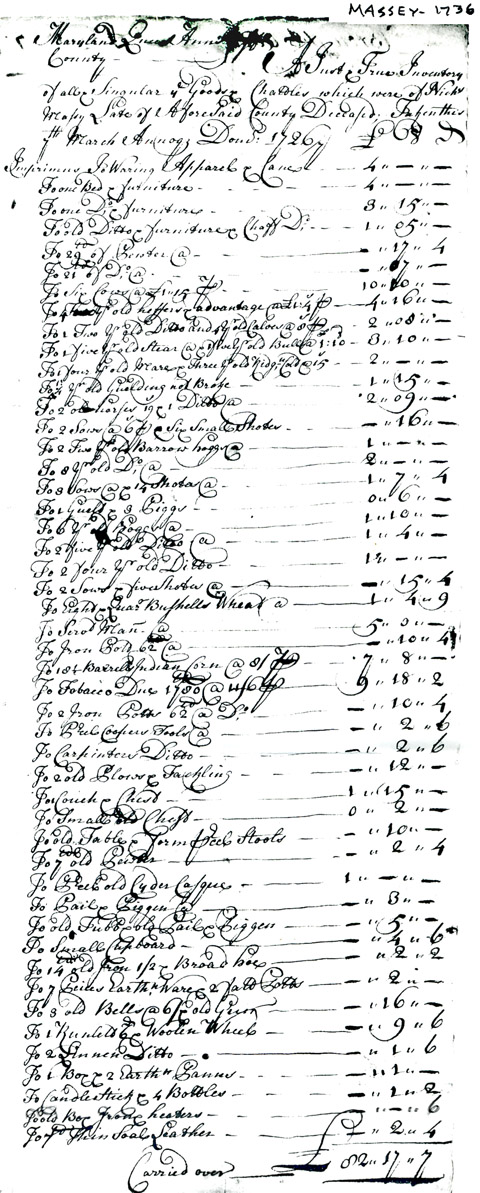 MASSEY - 1736
Maryland Queen Anns
County
A Just & True Inventory
of all & Singular y Goods & Chattles which were of Nichs
Massy Late of Aforesaid County Deceased, Taken this
7th March Annoq Domi: 1726/7 £ S D
Imprimus To Waring Apparel & Cane 4 " — " —
To one Bed & furniture 4 " — " —
To one Do & furniture 3 " 15 " —
To old Ditto & furniture & Chaff Do 1 " 05 " —
To 29 lb of Pewter @ — " 17 " 4
To 21 lb of Do @ — " 7 " —
To Six Cows @ £1:15 P 10 " 10 " —
To 4 Yr old heffers & advantage @ £1:4 P 4 " 16 " —
To 1 Two Yr old Ditto and Yr old Calves @ 8 P 2 " 08 " —
To 1 five Yr old Stear @ & five Yr old Bull @ 1:10 3 " 10 " —
To 1 four Yr old Mare & Three Yr old @ 15 2 " — " —
To Yr old Guelding not Broke 1 " 15 " —
To 2 old horses 1 Ditto @ 2 " 09 " —
To 2 Sows @ 6 P & Six Small Shotes — " 16 " —
To 2 Two Yr old Barrow hoggs @ 1 " — " —
To 8 Yr old Do @ 2 " — " —
To 3 Sows @ & 14 Shotes @ 1 " 7 " 4
To 1 & 3 Piggs 0 " 6 " —
To 6 Yr old Boggs @ 1 " 10 " —
To 2 five Yr old Ditto @ 1 " 4 " —
To 2 four Yr old Ditto
To 2 Sows & five Shotes @ — " 15 " 4
To Eight & Quar Bushells Wheat @ 1 " 4 " 9
To Servt Man @ 5 " 0 " —
To Iron 62 @ — " 10 " 4
To 18½ Barrells Indian Corn @ 8/ P 7 " 8 " —
To Tobacco Due 1780 @ P 9 " 18 " 2
To 2 Iron Potts 62 @ Do — " 10 " 4
To Prcel Coopers Tools @ — " 2 " 6
To Carpinters Ditto — " 2 " 6
To 2 old Plows & Tackling — " 12 " —
To 1 Couch & Chest 1 " 15 " —
To Small old Chest 0 " 2 " —
To old Table & Form & Stools — " 10 " —
To 7 lb old Pewter — " 2 " 4
To old Cyder Casque 1 " — " —
To Pail & Piggen @ — " 3 " —
To old Tubb & old Pail & Piggen — " 5 " —
To Small Cupboard — " 4 " 6
To 14 lb old Iron 1/2 & Broad hoe — " 2 " 2
To 7 Peices Earthn Ware & 2 Potts — " 2 " —
To 3 old Bells @ 6/ & old — " 16 " —
To 1 Runlett & Woolen Wheel — " 9 " 6
To 2 Linnen Ditto — " 1 " 6
To 1 Box & 2 Earthn Panns — " 1 " —
To Candlestick & 4 Bottles — " 1 " 2
To old Box Iron & heaters — " — " 6
To 7 lb Soal Leather 2 " 2 " 4
Carried over £ 82 " 17 " 7